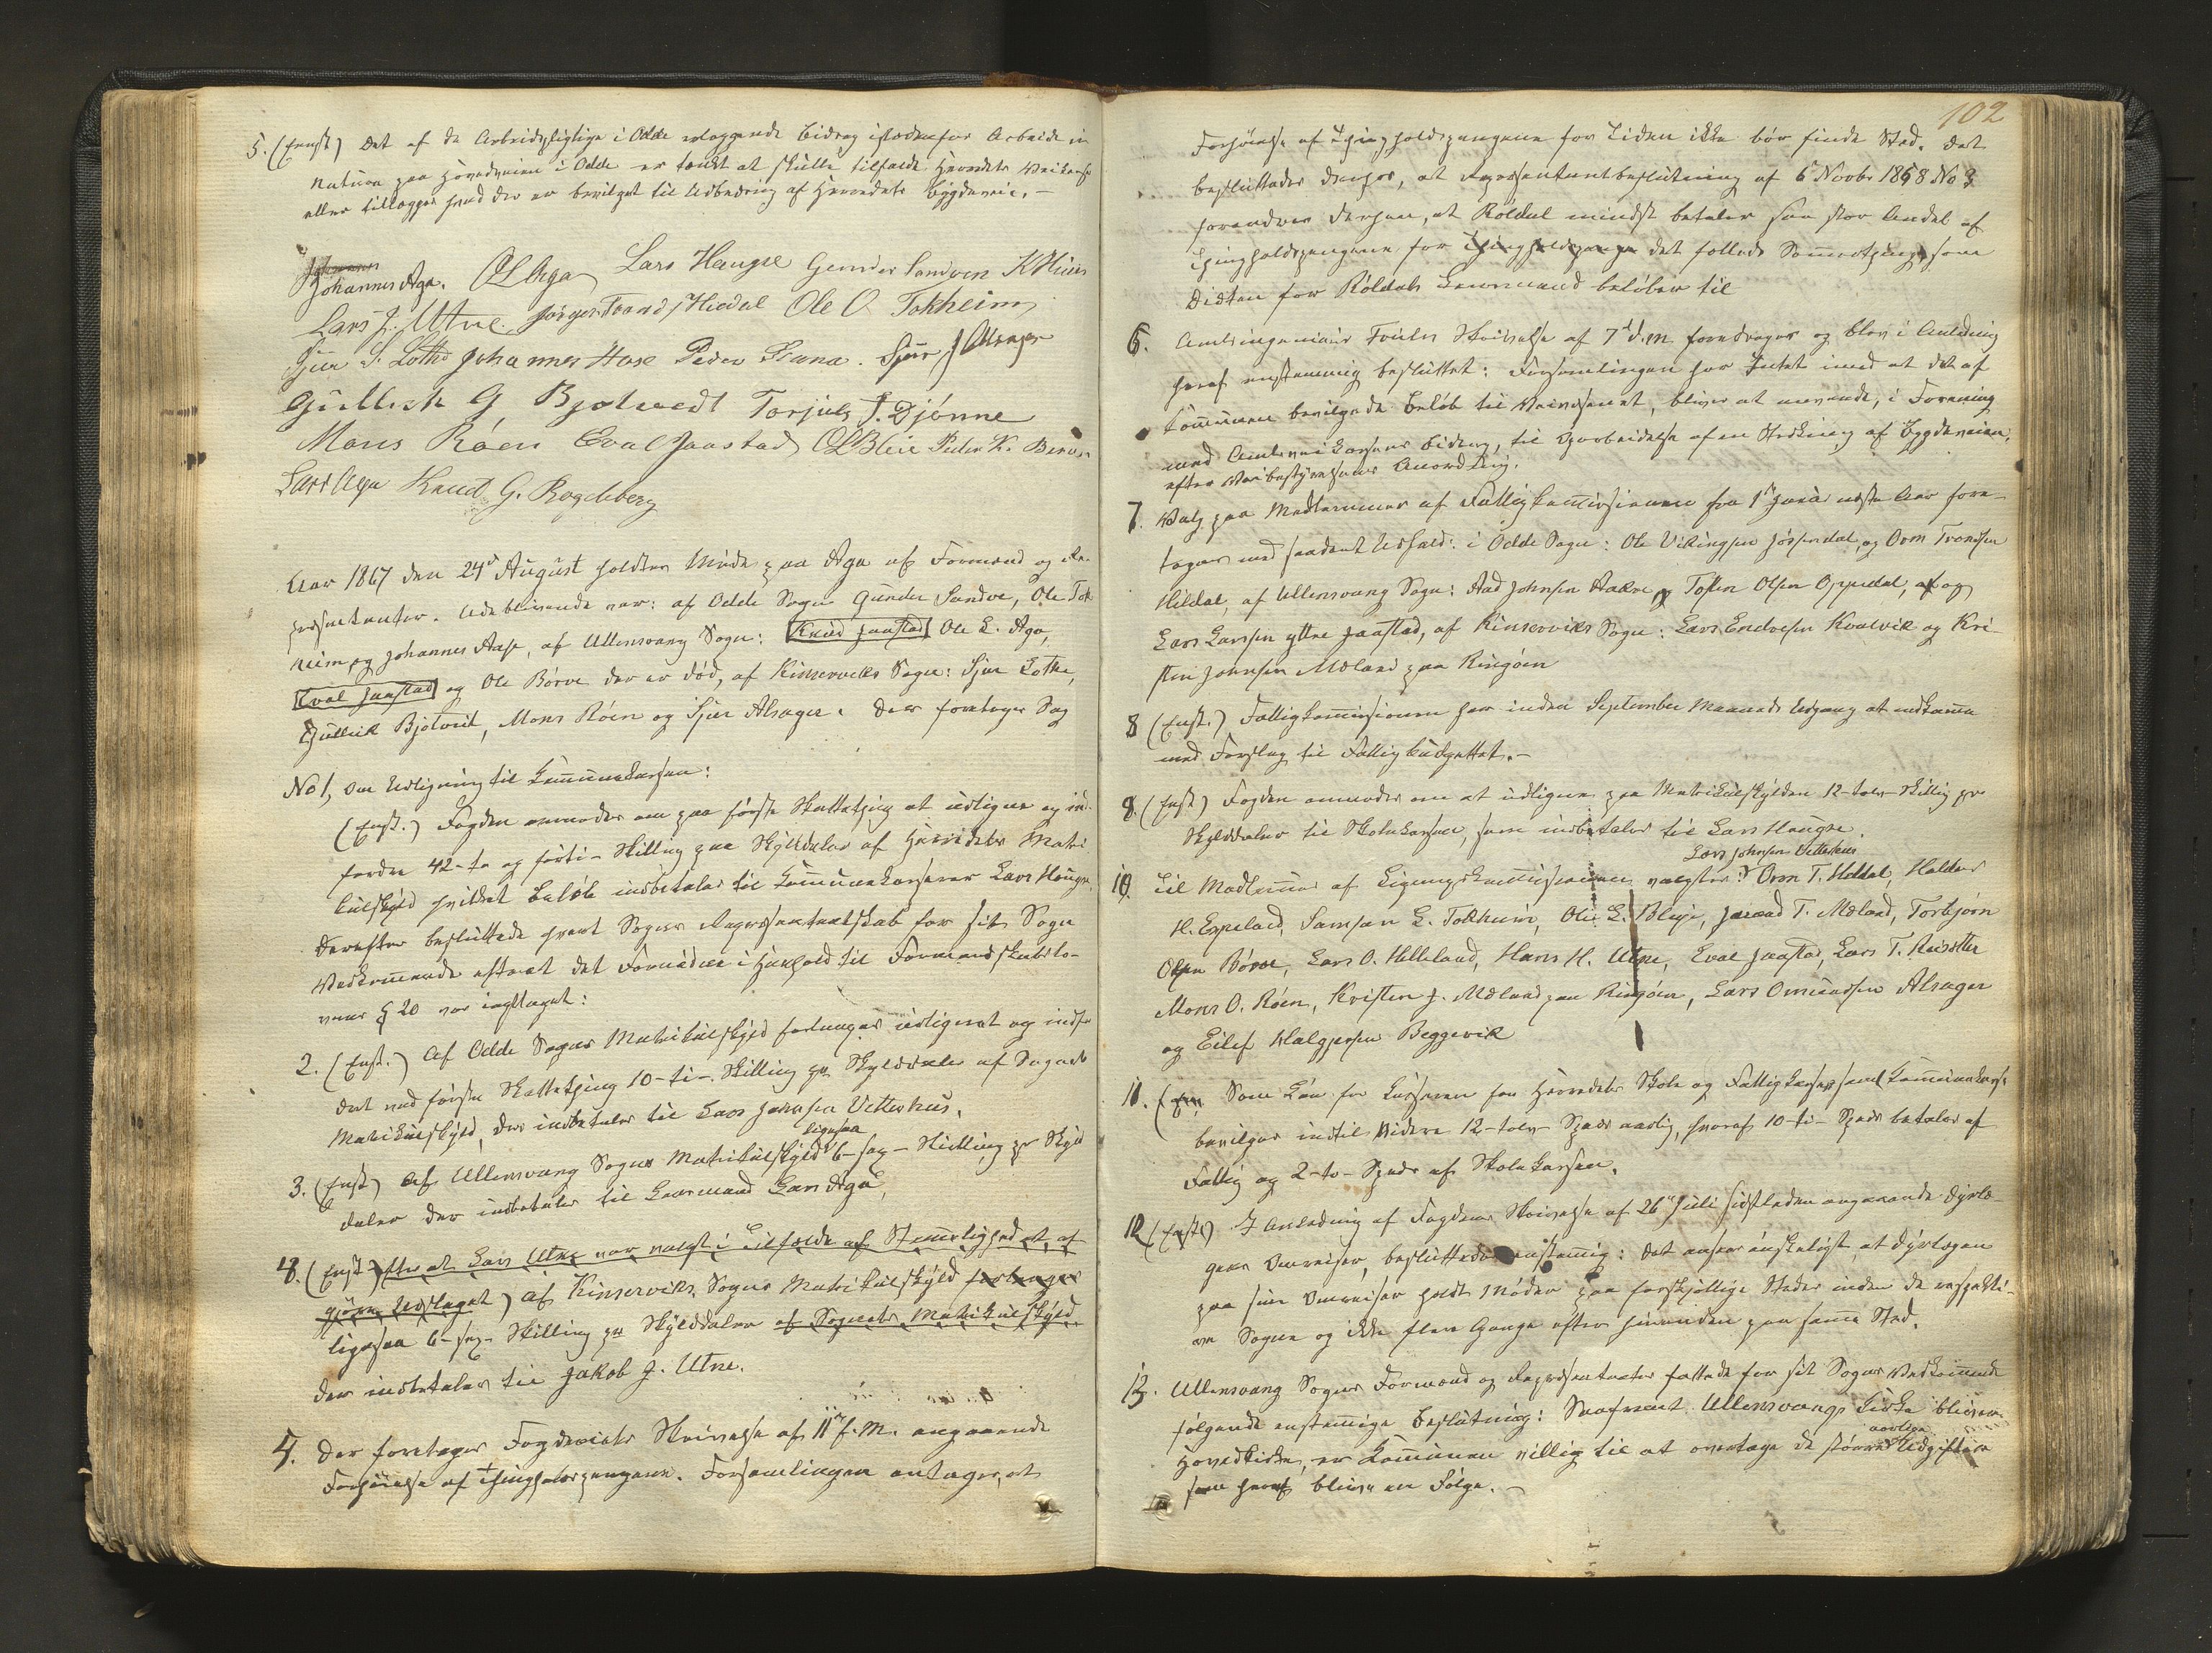 5. (Eenst) Det af de Arbeidspligtige i Odde erlæggende Bidrag istedetfor Arbeide in
natura paa Hovedveien i Odde er tænkt at skulle tilfalde Herredets Veikasse
eller tillægges hvad der er bevilget til Udbedring af Herredets Bygdeveie. –
Johannes Aga. OLAga Lars Haugse Gunder Sandven
Lars J. Utne. Jørgen Traads / Hildal Ole O Tokheim
Sjur S. Lothe Johannes Hase Peder Sexe. Sjur J Alsager
Gullick G Bjotvedt Torjuls T. Djønne
Mons Röen Eval Jaastad OLBleie Peder K.
Lars Aga Knud G. Rogdeberg
Aar 1867 den 24de August holdtes Møde paa Aga af Formænd og Re-
præsentanter. Udeblivende var: af Odde Sogn Gunder Sandve, Ole Tok
heim og Johannes Aase, af Ullensvang Sogn: Knud Jaastad Ole L. Aga,
Eval Jaastad og Ole Börve der er død, af Kinserviks Sogn: Sjur Lothe,
Gullik Bjotveit, Mons Röen og Sjur Alsager. Der foretoges Sag
No 1, Om Udligning til Kommunekassen:
(Enst.) Fogden anmodes om paa første Skattething at udligne og ind-
fordre 42-to og førti- Skilling paa Skylddaler af Herredets Matri
kulskyld hvilket Beløb indbetales til Kommunekasserer Lars Haugse.
Derefter besluttede hvert Sogns Repræsentantskab for sit Sogns
Vedkommende efterat det Fornødne i Henhold til Formandskabslo-
vens § 20 var iagttaget:
2. (Enst.) Af Odde Sogns Matrikulskyld forlanges udlignet og indfor
dret ved første Skattething 10-ti-. Skilling pr Skylddaler af Sognets
Matrikulskyld, der indbetales til Lars Johnsen Vetterhus.
3. (Enst) Af Ullensvang Sogns Matrikulskyld ligesaa 6-sex- Skilling pr Skyld
daler der indbetales til Lensmand Lars Aga,
4. (Enst) Efter at Lars Utne var valgt i Tilfælde af Stemmelighed at af
gjøre Udslaget) af Kinserviks Sogns Matrikulskyld forlanges
ligesaa 6-sex- Skilling pr Skylddaler af Sognets Matrikulskyld
der indbetales til Jakob J. Utne.
5. Der foretoges Fogderiets Skrivelse af 11te f. M. angaaende
Forhøielse af Thingholdspengene. Forsamlingen antager, at
102
Forhøielse af Thingholdspengene for Tiden ikke bør finde Sted. Det
besluttedes derhos, at Repræsentantbeslutning af 6te Novbr 1858 No 3
forandres derhen, at Röldal mindst betaler saa stor Andel af
Thingholdspengene for Thingholdspenge det fælleds Sommerthing, som
Diæten for Röldals Lensmand beløber til
6. Amtsingeniør Skrivelse af 7de d. M. foredroges og blev i Anledning
heraf enstemmig besluttet: Forsamlingen har Intet imod at det af
Kommunen bevilgede Beløb til Veivæsenet, bliver at anvende, i Forening
med Amtsveikassens Bidrag, til Oparbeidelse af en Strækning af Bygdeveien,
efter Veibestyrelsens Anordning.
7. Valg paa Medlemmer af Fattigkommissionen fra 1ste Januar næste Aar fore-
toges med saadant Udfald: i Odde Sogn: Ole Vikingsen Jøssendal, og Orm Trondsen
Hildal, af Ullensvang Sogn: Aad Johnsen Aakre og Tosten Olsen Oppedal, af og
Lars Larsen yttre Jaastad, af Kinserviks Sogn: Lars Endresen Kvalvik og Kri-
sten Johnsen Mæland paa Ringöen
8 (Enst.) Fattigkommissionen har inden September Maaneds Udgang at indkomme
med Forslag til Fattigbudgettet. –
9. (Enst) Fogden anmodes om at udligne paa Matrikulskylden 12-tolv- Skilling pr
Skylddaler til Skolekassen, som indbetales til Lars Haugse.
Lars Johnsen Vetterhus
10. Til Medlemmer af Ligningskommissionen valgtes: Orm T. Hildal, Haldor
H. Espeland, Samson L. Tokheim, Ole L. Bleie, T. Mæland, Torbjørn
Olsen Börve, Lars O. Helleland, Hans H. Utne, Eval Jaastad, Lars T.
Mons O. Röen, Kristen J. Mæland paa Ringöen, Lars Alsager
og Eilef Helgesen Beggevik
11. (Een Som Løn for Kasseren for Herredets Skole og Fattigkasse samt Kommunekasse
bevilges indtil Videre 12-tolv- Spdr aarlig, hvoraf 10-ti- Spdr betales af
Fattig og 2-to- Spdr af Skolekassen.
12 (Enst) I Anledning af Fogdens Skrivelse af 26de Juli sidstleden angaaende Dyrlæ-
gens Omreiser, besluttedes enstemmig: Det ansees ønskeligst, at Dyrlægen
paa sine Omreiser holdt Møder paa forskjellige Steder inden de respekti-
ve Sogne og ikke flere Gange efter hinanden paa samme Sted.
13. Ullensvang Sogns Formænd og Repræsentanter fattede for sit Sogns Vedkommende
følgende enstemmige Beslutning: Saafremt Ullensvangs Kirke bliver
Hovedkirke, er Kommunen villig til at overtage de større aarlige Udgifter
som heraf blive en Følge. –